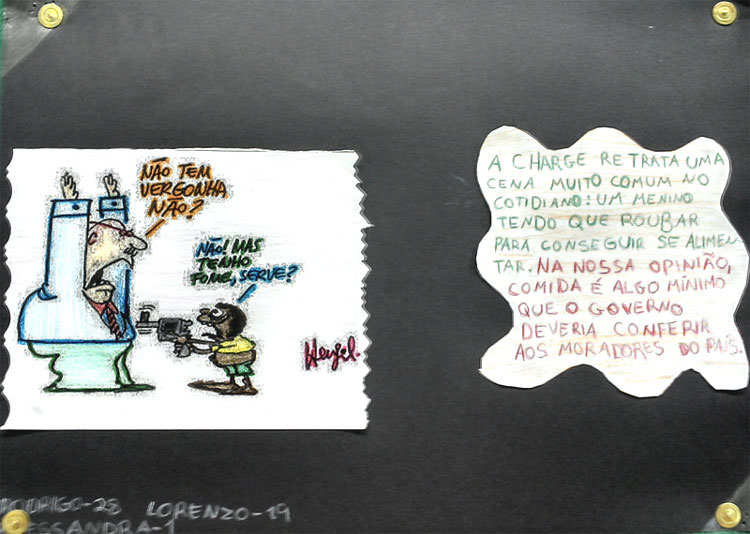 NÃO TEM
VERGONHA
NÃO?
NÃO! MAS
TENHO
FOME, SERVE?
A CHARGE RETRATA UMA
CENA MUITO COMUM NO
COTIDIANO: UM MENINO
TENDO QUE ROUBAR
PARA CONSEGUIR SE ALIMEN-
TAR. NA NOSSA OPINIÃO,
COMIDA É ALGO MÍNIMO
QUE O GOVERNO
DEVERIA CONFERIR
AOS MORADORES DO PAÍS.
RODRIGO-28 LORENZO-19
ALESSANDRA-1